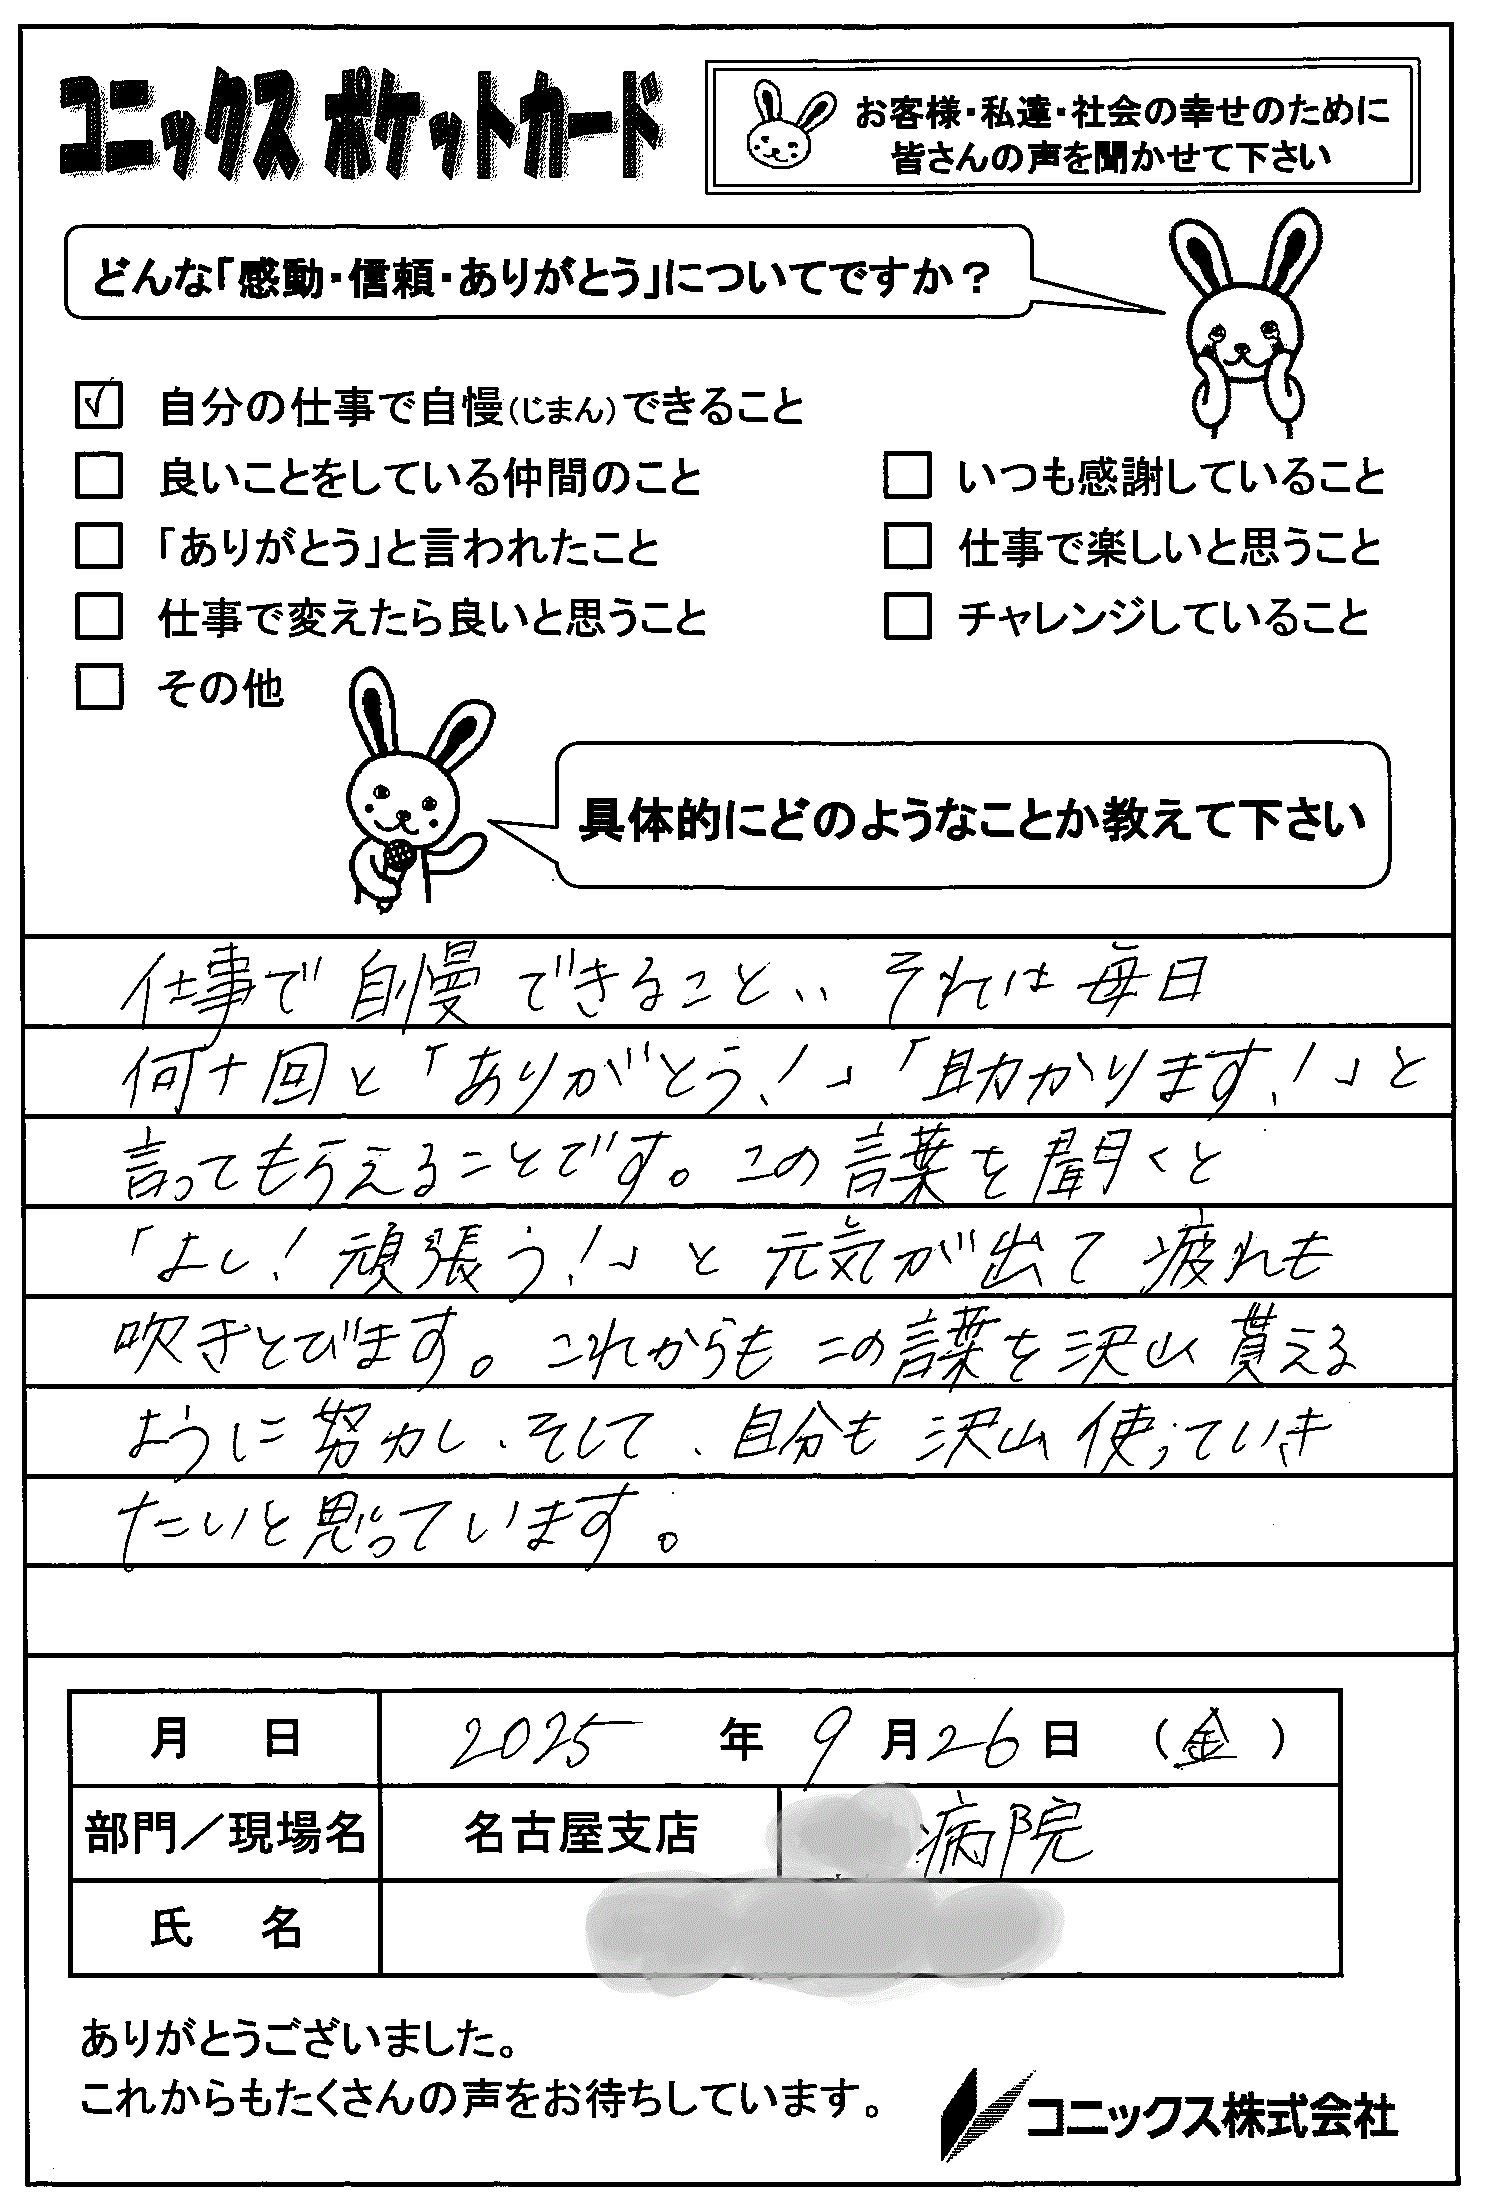 コニックス ポケットカード
お客様・私達・社会の幸せのために
皆さんの声を聞かせて下さい
どんな「感動・信頼・ありがとう」についてですか?
✓ 自分の仕事で自慢(じまん)できること
良いことをしている仲間のこと
いつも感謝していること
「ありがとう」と言われたこと
仕事で楽しいと思うこと
仕事で変えたら良いと思うこと
チャレンジしていること
その他
具体的にどのようなことか教えて下さい
仕事で自慢できること、、それは毎日
何十回と「ありがとう!」「助かります!」と
言ってもらえることです。この言葉を聞くと
「よし!頑張う!」と元気が出て疲れも
吹きとびます。これからもこの言葉を沢山貰える
ように努力し、そして、自分も沢山使っていき
たいと思っています。
月日 2025年9月26日(金)
部門/現場名 名古屋支店 病院
氏名
ありがとうございました。
これからもたくさんの声をお待ちしています。
コニックス株式会社